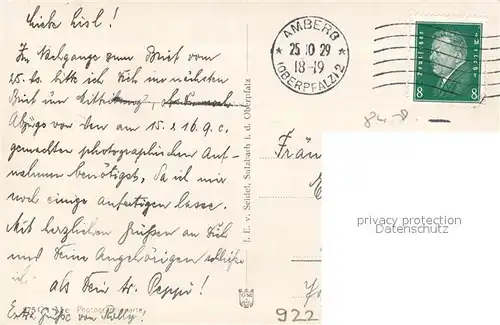 Liebe Lisl!
Im Nachgange zum Brief vom
25. ds. bitte ich Dich im nächsten
Brief um Mitteilung, ob Du noch
Abzüge von den am 15. & 16. 9. c.
gemachten photographischen Auf-
nahmen benötigst, da ich mir
noch einige anfertigen lasse.
Mit herzlichen Grüßen an Dich
und Deine Angehörigen schließe
ich als Dein tr. Peppi!
Extra Grüße von Kelly!
J. E. v. Seidel, Sulzbach i. d. Oberpfalz
AMBERG
25.10.29
18-19
(OBERPFALZ) 2
Deutsches Reich
8 8
84.-D.
Fräu
privacy protection
Datenschutz
922